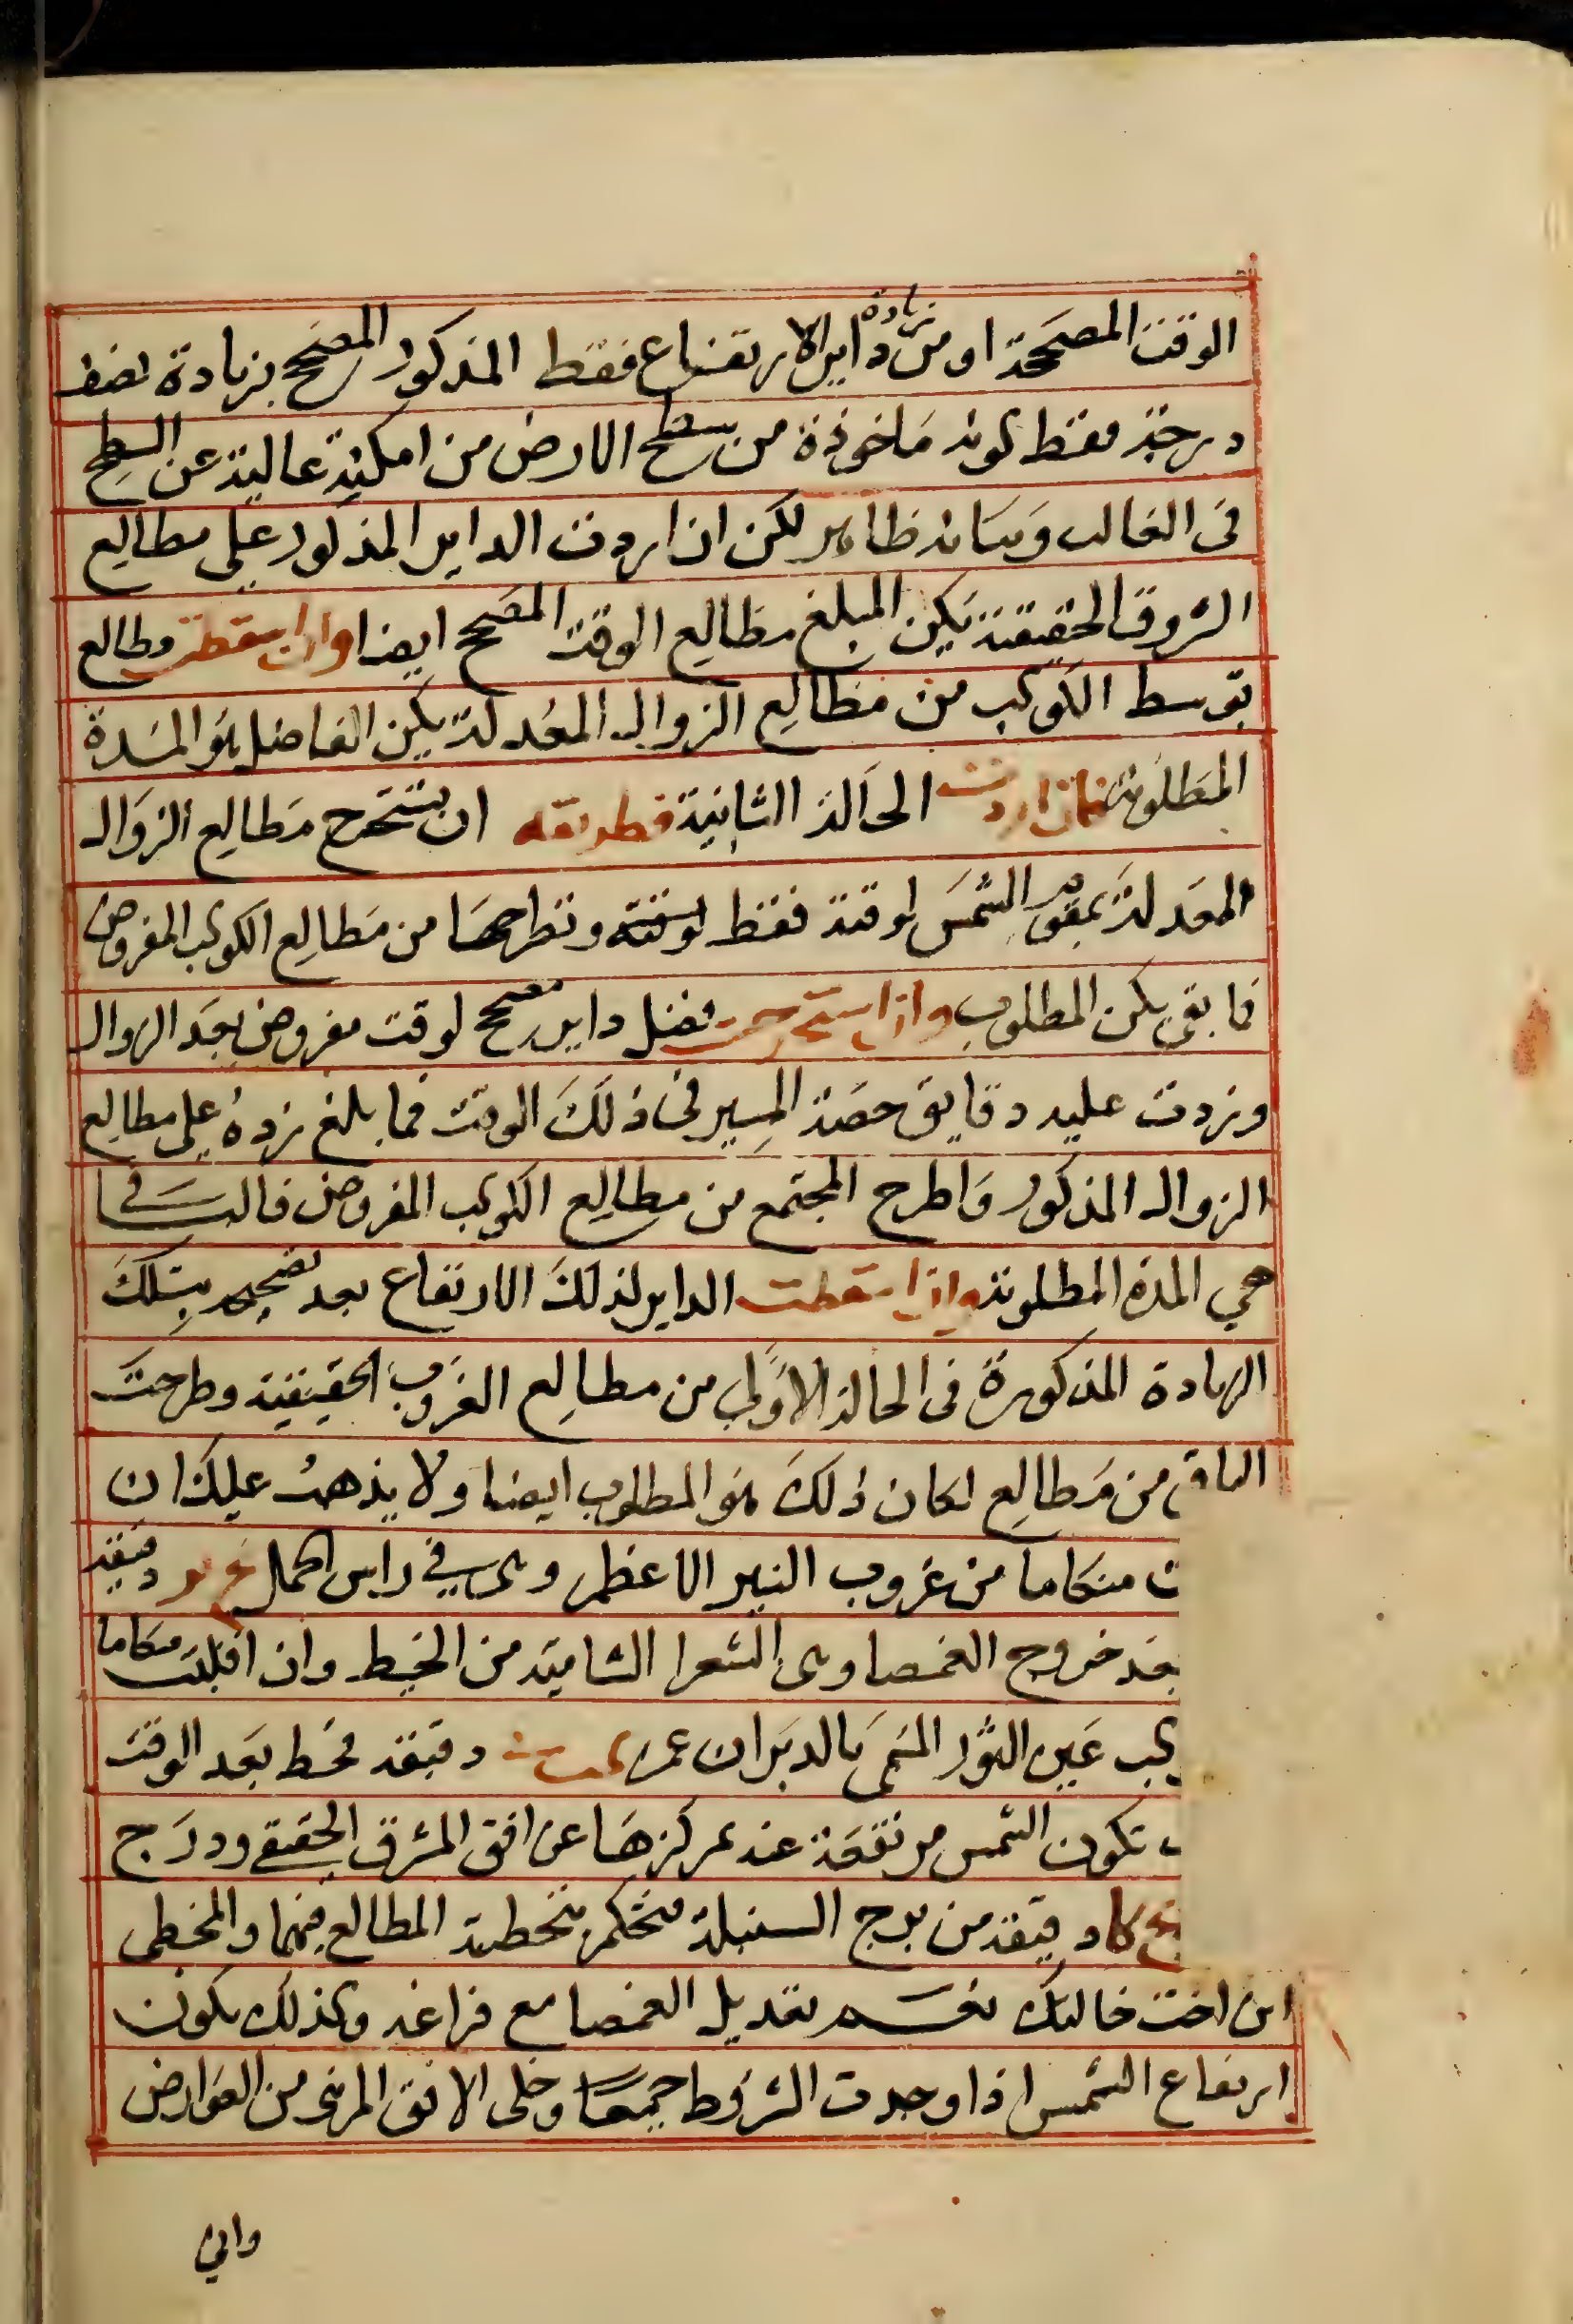 الوقت المصححة او من زيادة داير الارتفاع فقط المذكور المصحح بزيادة نصف
درجة فقط لونه ماخوذة من سطح الارض من امكنة عالية عن السطح
فى الغالب وبيانه ظاهر لكن ان اردت الداير المذكور على مطالع
الشروق الحقيقية يكن المبلغ مطالع الوقت المصحح ايضا وان اسقطت مطالع
توسط الكوكب من مطالع الزوال المعدلة يكن الفاضل هو المدة
المطلوبة فان اردت الحالة الثانية فطريقه ان تستخرج مطالع الزوال
المعدلة بمقوم الشمس لوقته فقط وتطرحها من مطالع الكوكب المفروض
فما بقى يكن المطلوب واذا استخرجت فضل داير مصحح لوقت مفروض بعد الزوال
وزدت عليه دقايق حصة المسير فى ذلك الوقت فما بلغ زده على مطالع
الزوال المذكور واطرح المجتمع من مطالع الكوكب المفروض فالباقى
هي المدة المطلوبة واذا اسقطت الداير لذلك الارتفاع بعد تصحيحه بتلك
الزيادة المذكورة فى الحالة الاولى من مطالع الغروب الحقيقية وطرحت
الباقى من مطالع لكان ذلك هو المطلوب ايضا ولا يذهب عليك ان
ت منكاما من غروب النير الاعظم وهى في راس الحمل دقيقة
بعد خروج الغمصا وهى الشعرا الشامية من الخيط وان اقلبت منكاما
كب عين الثور المسمى بالدبران عن دقيقة فخط بعد الوقت
تكون الشمس مرتفعة عند مركزها عن افق المشرق الحقيقى ودرج
كا دقيقة من برج السنبلة فتحكم بتخطية المطالع فيهما والمخطى
ابن اخت خالتك نفسه بتعديل الغمصا مع فراغه وكذلك يكون
ارتفاع الشمس اذا وجدت الشروط جميعا وخلى الافق المرئى من العوارض
وان